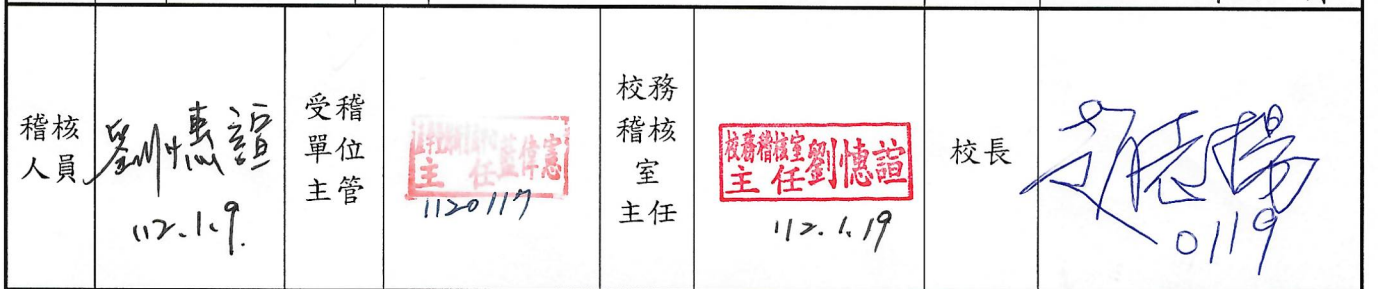 稽核
人員
劉憓諠
112.1.9.
受稽
單位
主管
主任 藍偉憲
1120117
校務
稽核
室
主任
校務稽核室
主任 劉憓諠
112.1.19
校長
0119